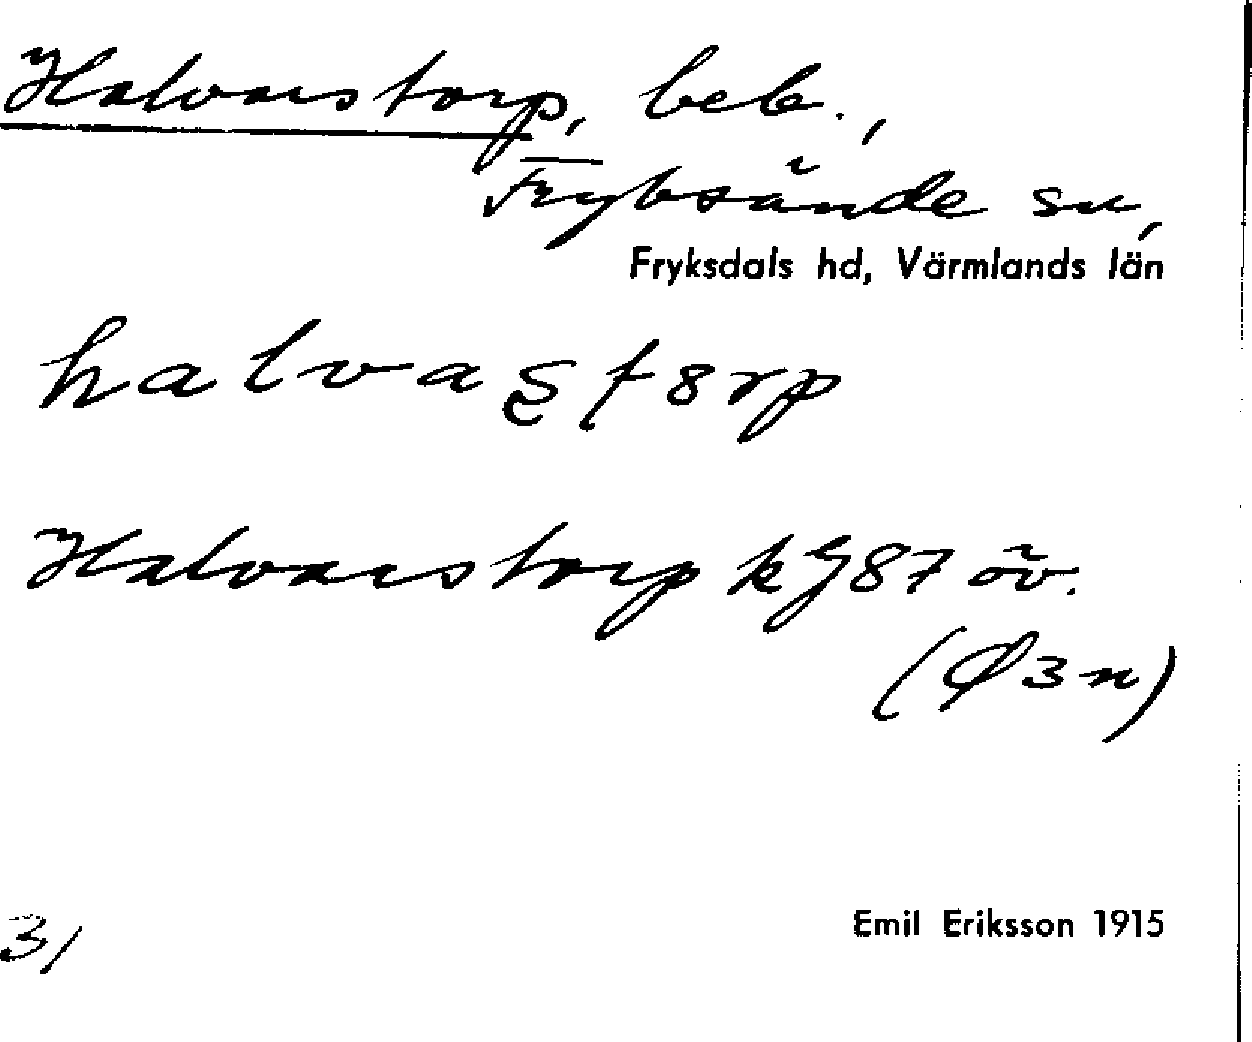 Halvarstorp, beb.,
Fryksände sn,
Fryksdals hd, Värmlands län
halvaʂt8rp
Halvarstorp kJ87 öv.
(Ø3n)
Emil Eriksson 1915
31